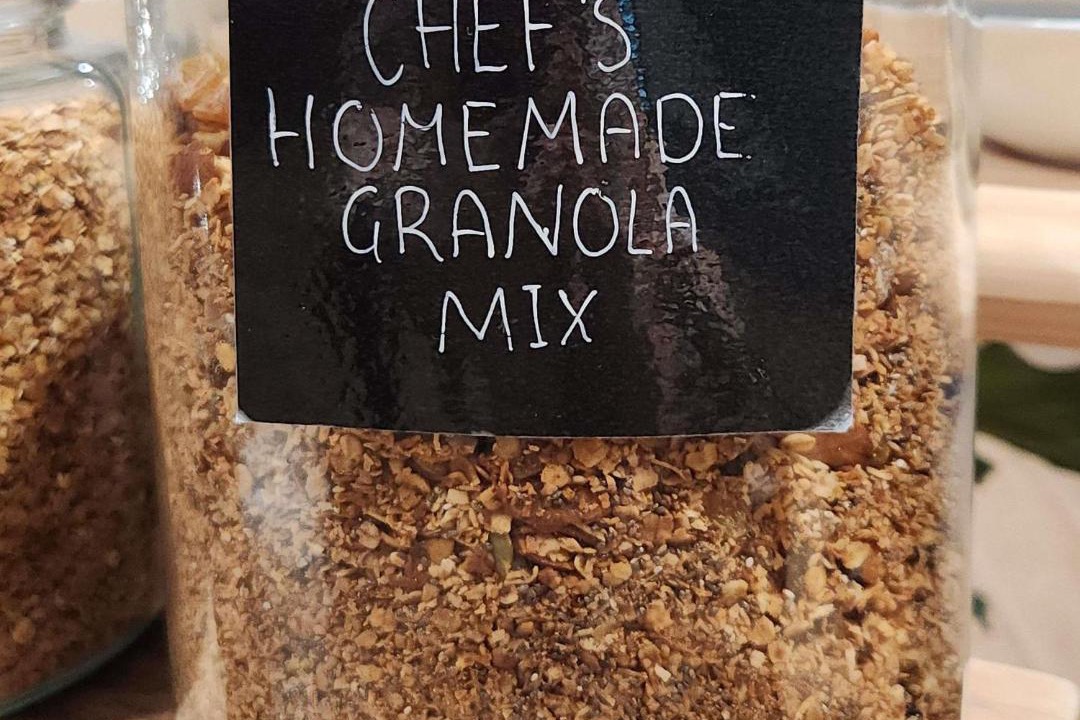 CHEF'S
HOMEMADE
GRANOLA
MIX